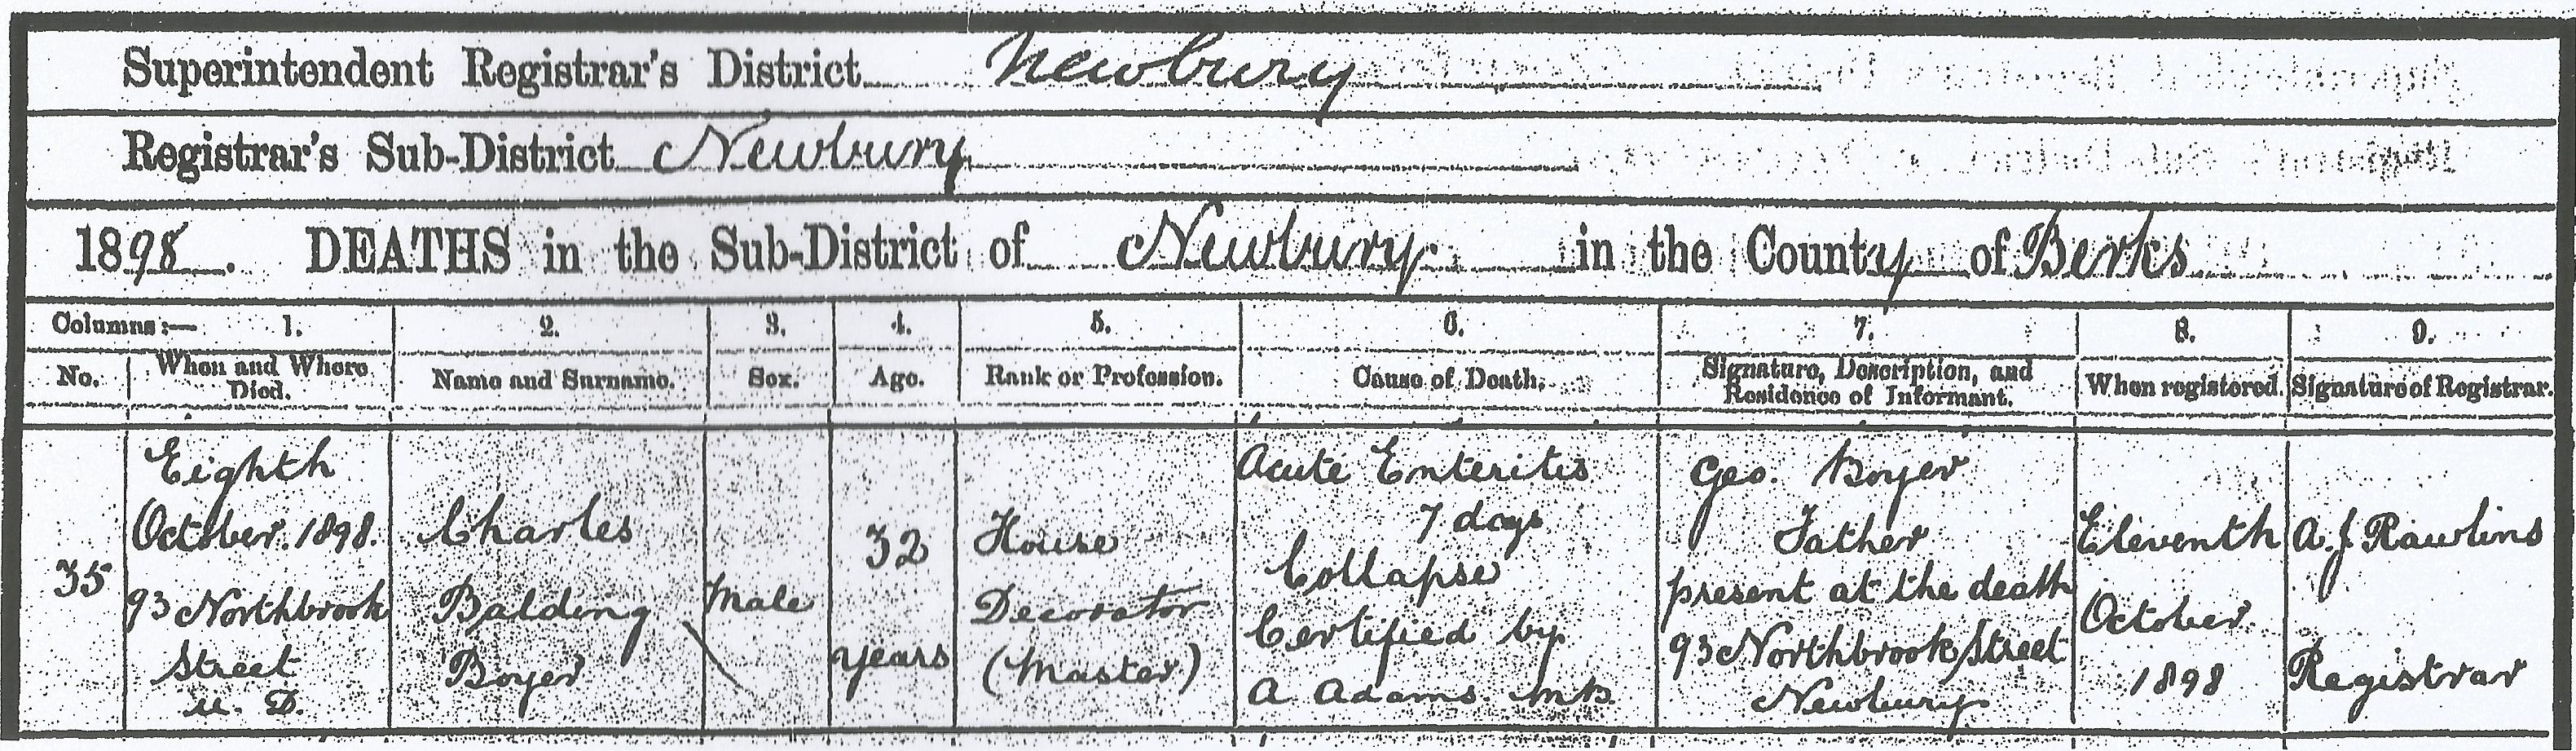 Superintendent Registrar's District Newbury
Registrar's Sub-District Newbury
1898. DEATHS in the Sub-District of Newbury in the County of Berks
Columns:— 1. 2. 3. 4. 5. 6. 7. 8. 9.
No. When and Where Died. Name and Surname. Sex. Age. Rank or Profession. Cause of Death. Signature, Description, and Residence of Informant. When registered. Signature of Registrar.
35
Eighth
October. 1898.
93 Northbrook
Street
U. D.
Charles
Balding
Boyer
Male
32
years
House
Decorator
(Master)
Acute Enteritis
7 days
Collapse
Certified by
A Adams MB.
Geo. Boyer
Father
present at the death
93 Northbrook Street
Newbury
Eleventh
October
1898
A. J. Rawlins
Registrar